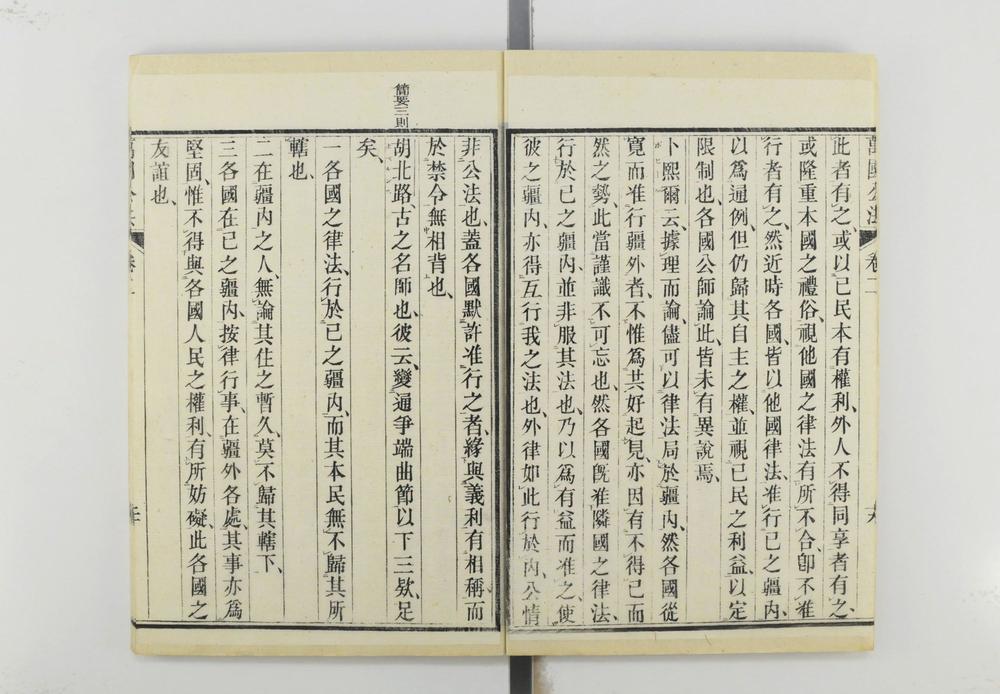 此者有之、或以己民本有權利、外人不得同享者有之、
或隆重本國之禮俗、視他國之律法有所不合、卽不准
行者有之、然近時各國、皆以他國律法、准行己之疆內、
以爲通例、但仍歸其自主之權、並視己民之利益、以定
限制也、各國公師論此、皆未有異說焉、
卜熙爾云、據理而論、儘可以律法局於疆內、然各國從
寬而准行疆外者、不惟爲共好起見、亦因有不得已而
然之勢、此當謹識不可忘也、然各國旣准隣國之律法、
行於己之疆內、並非服其法也、乃以爲有益而准之、使
彼之疆內、亦得互行我之法也、外律如此行於內、公情
非公法也、蓋各國默許准行之者、緣與義利有相稱、而
於禁令無相背也、
簡要三則
胡北路、古之名師也、彼云、變通爭端曲節、以下三欵足
矣、
一各國之律法、行於己之疆內、而其本民無不歸其所
轄也、
二在疆內之人、無論其住之暫久、莫不歸其轄下、
三各國在己之疆內、按律行事、在疆外各處、其事亦爲
堅固、惟不得與各國人民之權利有所妨礙、此各國之
友誼也、
萬國公法
卷二